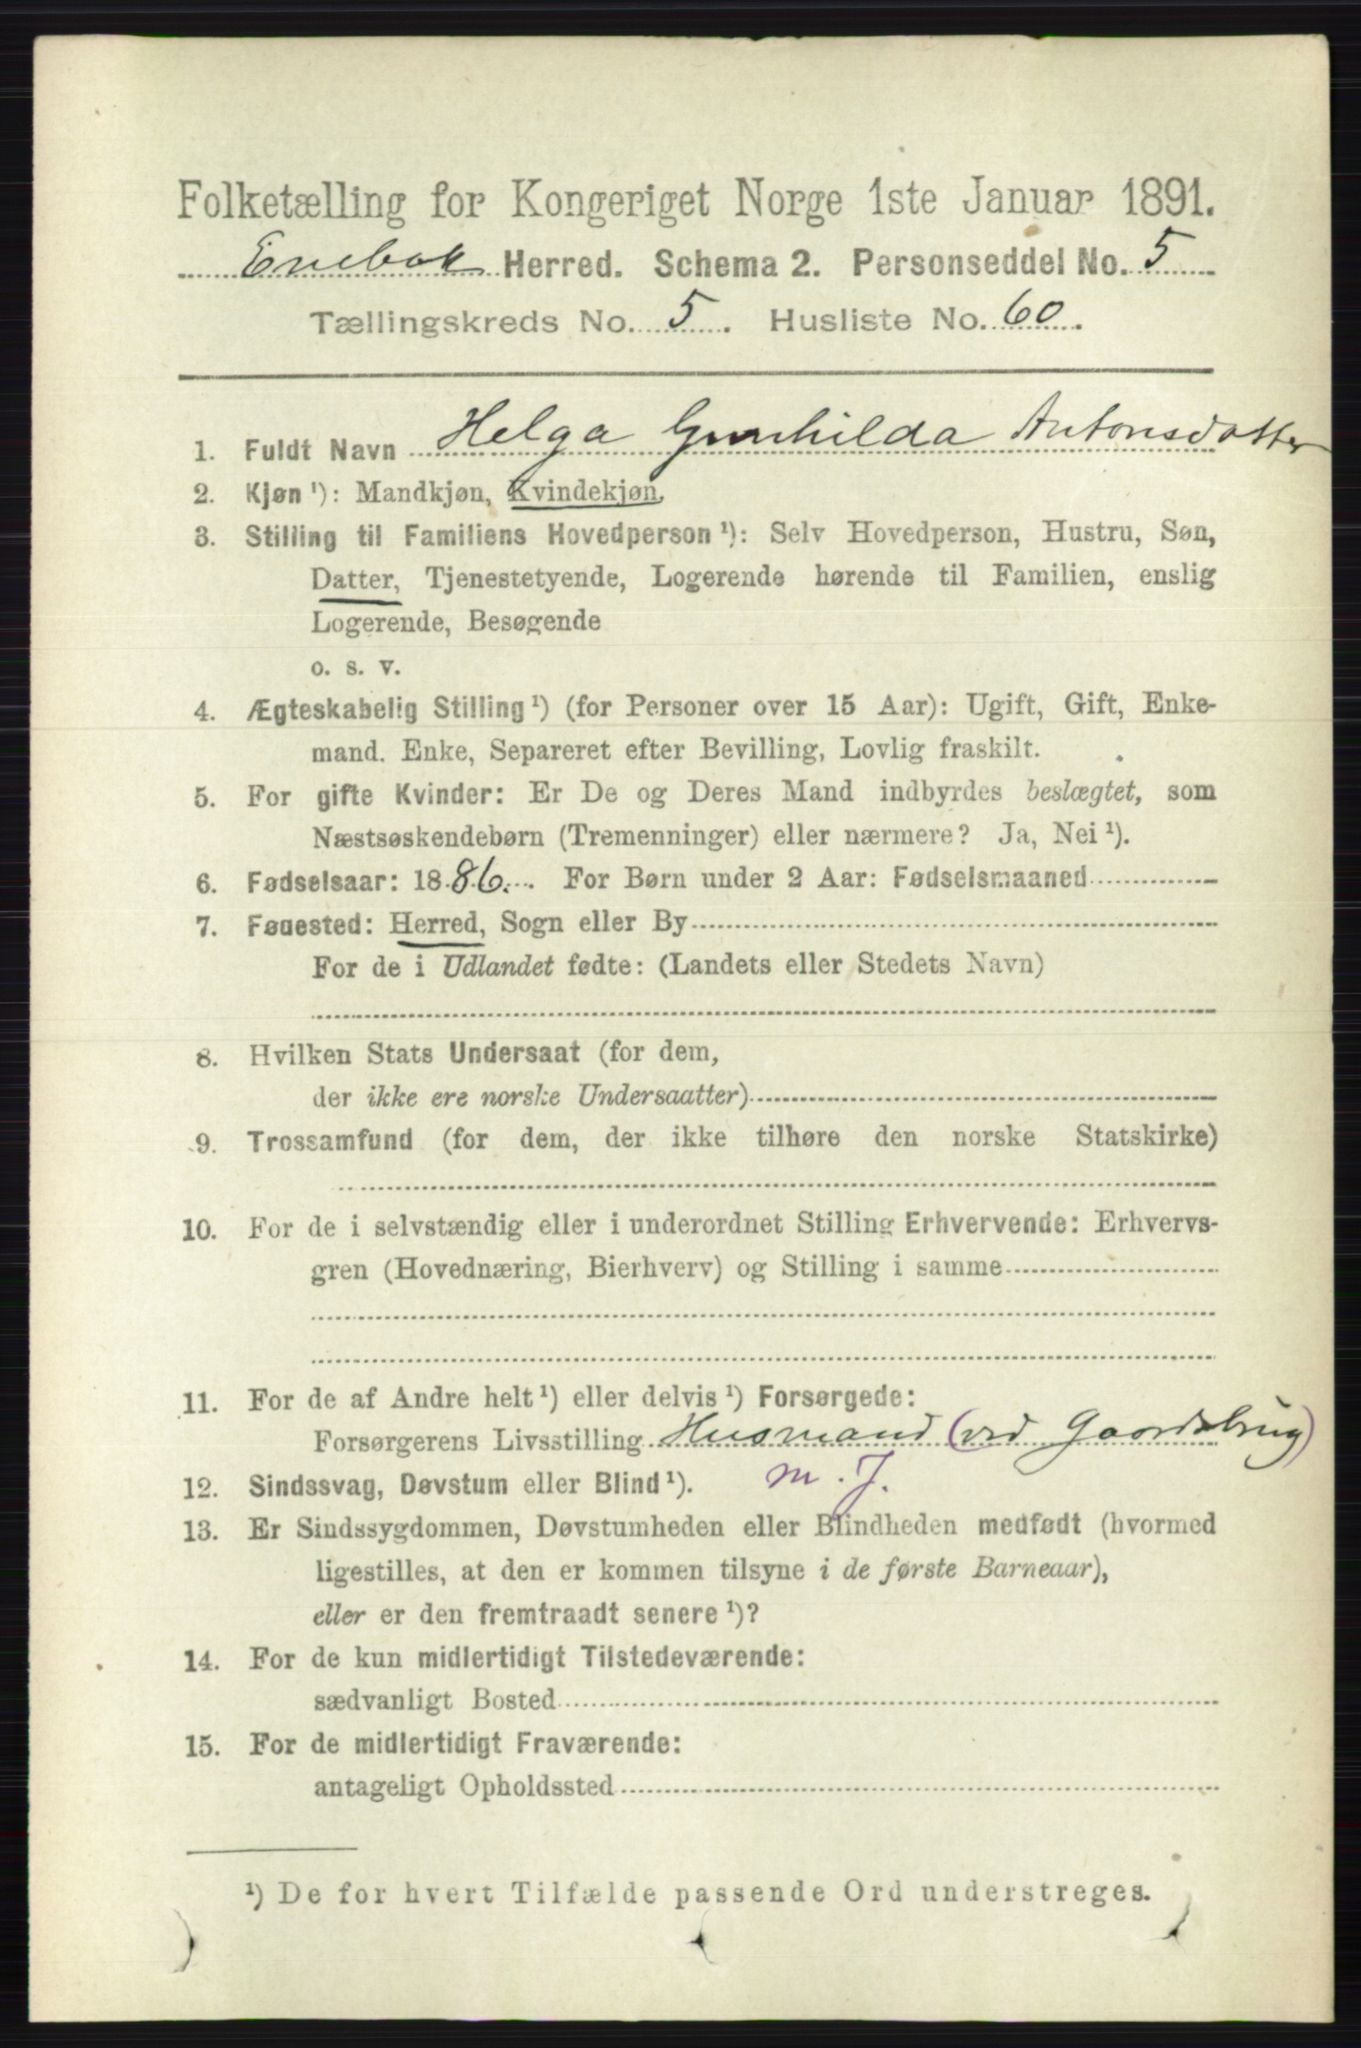 Folketælling for Kongeriget Norge 1ste Januar 1891.
Enebak Herred. Schema 2. Personseddel No. 5
Tællingskreds No. 5. Husliste No. 60.
1. Fuldt Navn Helga Gunhilda Antonsdatter
2. Kjøn ¹): Mandkjøn, Kvindekjøn.
3. Stilling til Familiens Hovedperson ¹): Selv Hovedperson, Hustru, Søn,
Datter, Tjenestetyende, Logerende hørende til Familien, enslig
Logerende, Besøgende
o. s. v.
4. Ægteskabelig Stilling ¹) (for Personer over 15 Aar): Ugift, Gift, Enke-
mand. Enke, Separeret efter Bevilling, Lovlig fraskilt.
5. For gifte Kvinder: Er De og Deres Mand indbyrdes beslægtet, som
Næstsøskendebørn (Tremenninger) eller nærmere? Ja, Nei ¹).
6. Fødselsaar: 1886. For Børn under 2 Aar: Fødselsmaaned
7. Føuested: Herred, Sogn eller By
For de i Udlandet fødte: (Landets eller Stedets Navn)
8. Hvilken Stats Undersaat (for dem,
der ikke ere norske Undersaatter)
9. Trossamfund (for dem, der ikke tilhøre den norske Statskirke)
10. For de i selvstændig eller i underordnet Stilling Erhvervende: Erhvervs-
gren (Hovednæring, Bierhverv) og Stilling i samme
11. For de af Andre helt ¹) eller delvis ¹) Forsørgede:
Forsørgerens Livsstilling Husmand (ved Gaardsbrug)
12. Sindssvag, Døvstum eller Blind ¹). m. J.
13. Er Sindssygdommen, Døvstumheden eller Blindheden medfødt (hvormed
ligestilles, at den er kommen tilsyne i de første Barneaar),
eller er den fremtraadt senere ¹)?
14. For de kun midlertidigt Tilstedeværende:
sædvanligt Bosted
15. For de midlertidigt Fraværende:
antageligt Opholdssted
¹) De for hvert Tilfælde passende Ord understreges.